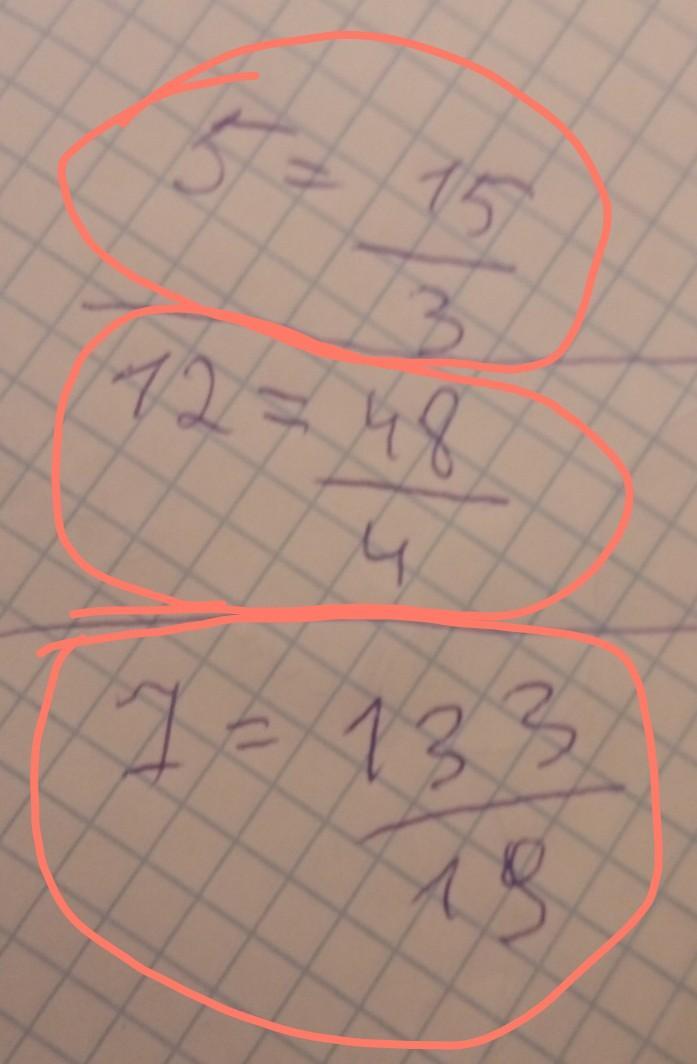 5 = 15
3
12 = 48
4
7 = 133
19